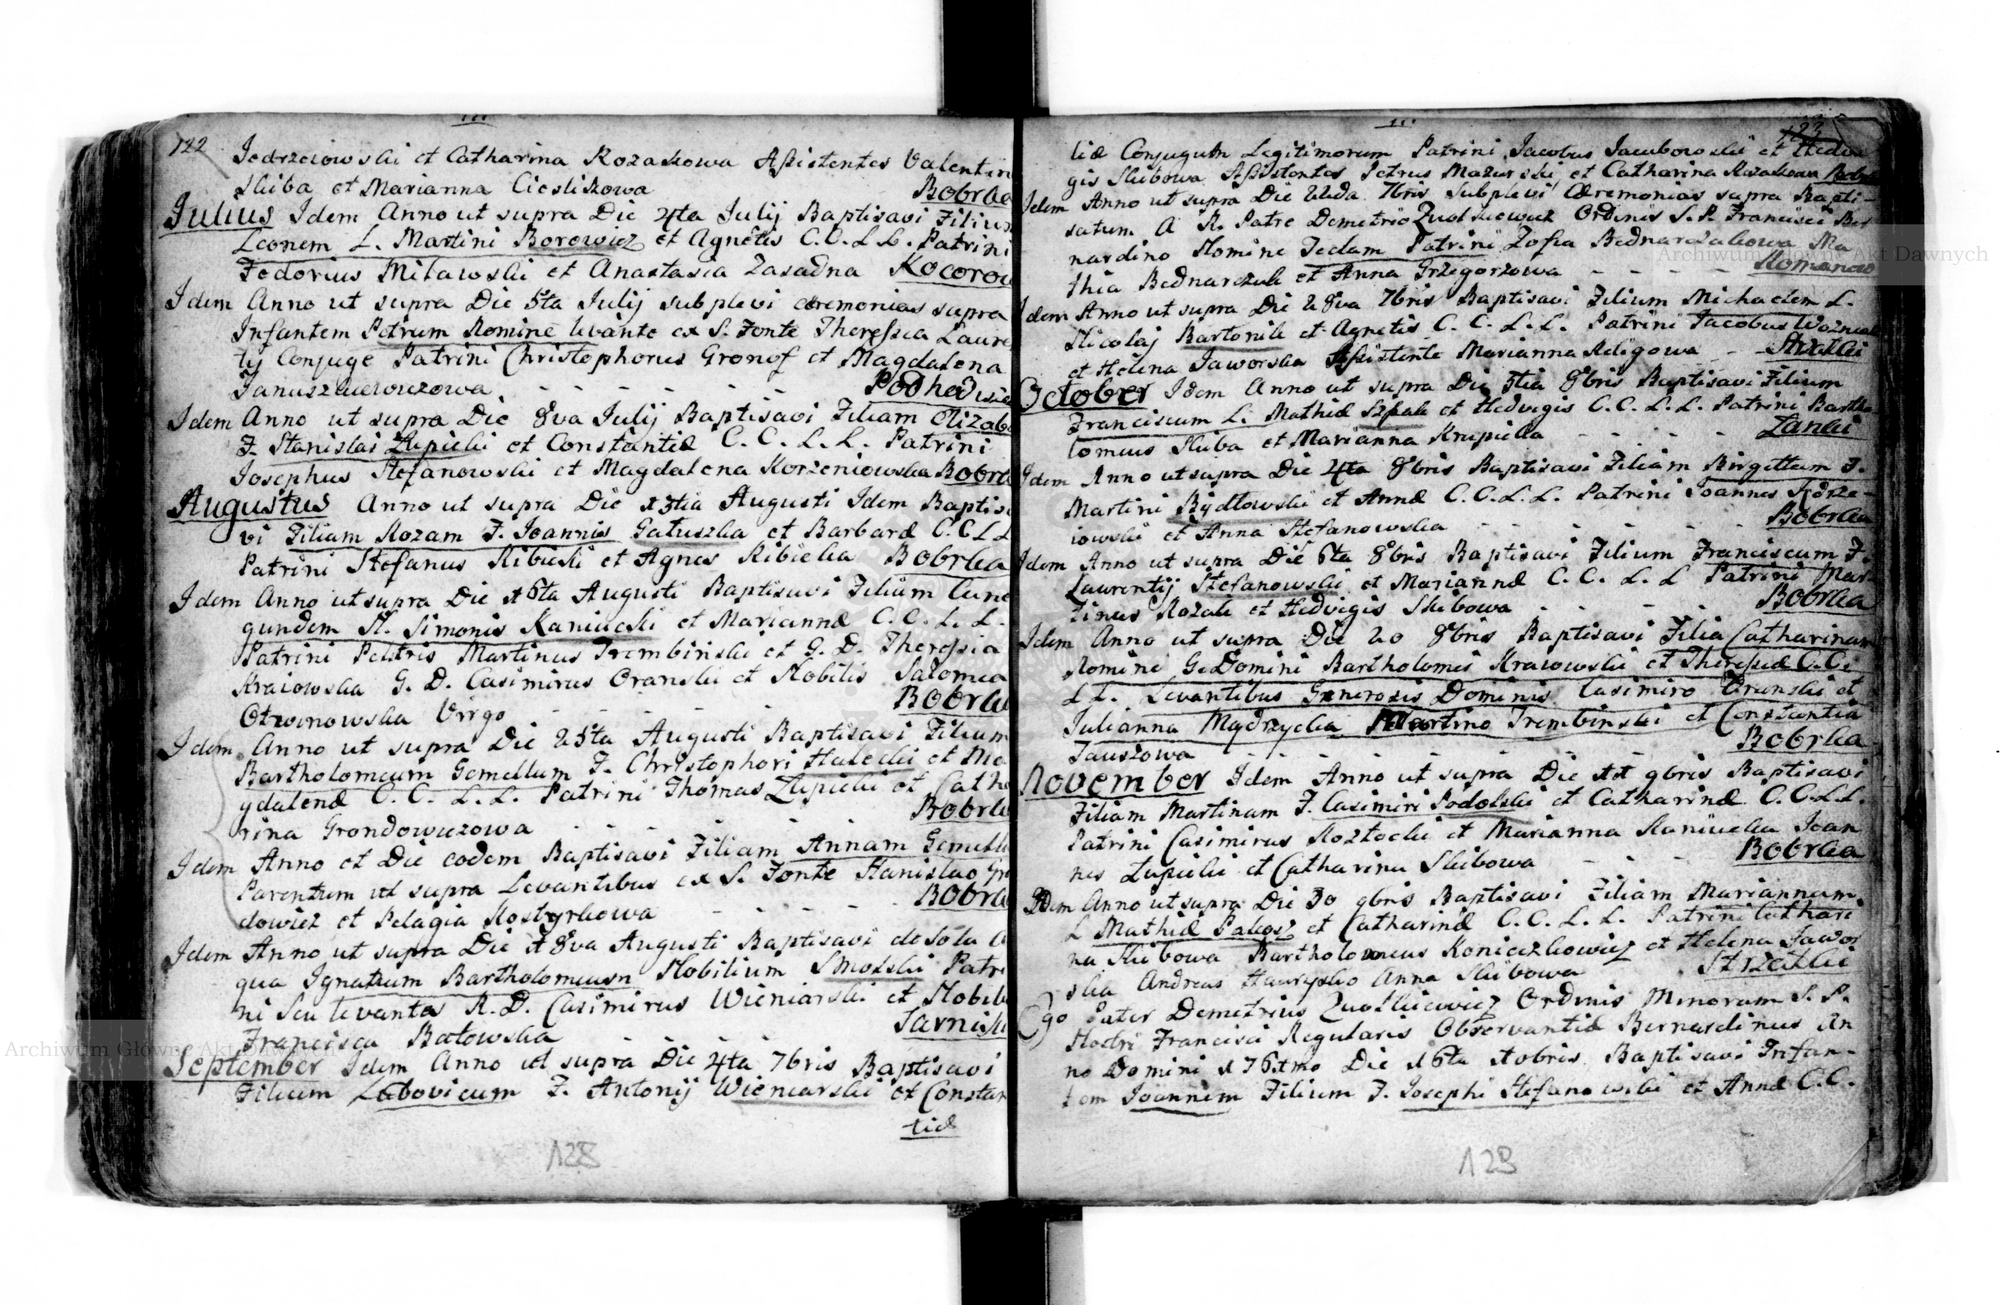 122
Jedrzeiowski et Catharina Kozakowa Assistentes Valentin
Skiba et Marianna Cieslikowa Bobrka
Julius Idem Anno ut supra Die 4ta Julij Baptisavi Filium
Leonem L. Martini Borowicz et Agnetis C.C.L.L. Patrini
Fedorius Milawski et Anastasia Zasadna Kocorow
Idem Anno ut supra Die 5ta Julij suplevi ceremonias supra
Infantem Petrum Nomine levante ex S. Fonte Theressia Laure
tij Conjuge Patrini Christophorus Gronof et Magdalena
Januszkiewiczowa Podhacie
Idem Anno ut supra Die 8va Julij Baptisavi Filiam Elizabe
F. Stanislai Łupicki et Constantiæ C.C.L.L. Patrini
Josephus Stefanowski et Magdalena Korzeniowska Bobrk
Augustus Anno ut supra Die 13tia Augusti Idem Baptisa
vi Filiam Rozam F. Joannis Gatuszka et Barbaræ C.C L L
Patrini Stefanus Ribicki et Agnes Ribicka Bobrka
Idem Anno ut supra Die 16ta Augusti Baptisavi Filiam Cune
gundem N. Simonis Kaniucki et Mariannæ C.C.L.L.
Patrini Pelstris Martinus Trembinski et G. D. Theressia
Kraiowska G. D. Casimirus Oranski et Nobilis Salomea
Otwinowska Virgo Bobrka
Idem Anno ut supra Die 25ta Augusti Baptisavi Filium
Bartholomeum Gemellum F. Christophori Halecki et Ma
gdalenæ C.C.L.L. Patrini Thomas Łupicki et Catha
rina Grondowiczowa Bobrka
Idem Anno et Die eodem Baptisavi Filiam Annam Gemella
Parentum ut supra Levantibus ex S. Fonte Stanislao Gr
dowicz et Pelagia Kostyrkowa Bobrka
Idem Anno ut supra Die 18va Augusti Baptisavi de sola A
qua Ignatium Bartholomeum Nobilium Smolski Patri
ni seu levantes R. D. Casimirus Wieniarski et Nobili
Francisca Batowska Sarniski
September Idem Anno ut supra Die 4ta 7bris Baptisavi
Filium Ludovicum F. Antonij Wieniarski et Constan
tiæ
128
123
tiæ Conjugum Legitimorum Patrini Jacobus Jacubowski et Hedvi
gis Skibowa Assistentes Petrus Mazurski et Catharina Kozakowa Bobr
Idem Anno ut supra Die 22da 7bris Suplevi Ceremonias supra Bapti-
satum A R. Patre Demetrio Zwolskiewicz Ordinis S. P. Francisci Ber
nardino Nomine Teclam Patrini Zofia Bednarczukowa Ma
thia Bednarczuk et Anna Grzegorzowa Romanow
Idem Anno ut supra Die 28va 7bris Baptisavi Filium Michaelem L.
Nicolaj Bartonik et Agnetis C.C.L.L. Patrini Jacobus Wozniak
et Helena Jaworska Assistente Marianna Religowa Strzałki
October Idem Anno ut supra Die 3tia 8bris Baptisavi Filium
Franciscum L. Mathiæ Szpak et Hedvigis C.C.L.L. Patrini Bartho
lomeus Skiba et Marianna Krupicka Łanki
Idem Anno ut supra Die 4ta 8bris Baptisavi Filiam Birgittam F.
Martini Bydłowski et Annæ C.C.L.L. Patrini Joannes Korze-
iowski et Anna Stefanowska Bobrka
Idem Anno ut supra Die 6ta 8bris Baptisavi Filium Franciscum F.
Laurentij Stefanowski et Mariannæ C.C.L.L Patrini Mar-
tinus Kozak et Hedvigis Skibowa Bobrka
Idem Anno ut supra Die 20 8bris Baptisavi Filia Catharinam
Nomine G. Domini Bartholomei Kraiowski et Theressiæ C.C.
L L. Levantibus Generosis Dominis Casimiro Oranski et
Julianna Mądrzycka Martino Trembinski et Constantia
Jauszowa Bobrka
November Idem Anno ut supra Die 11 9bris Baptisavi
Filiam Martinam F. Casimiri Podolski et Catharinæ C.C.L.L.
Patrini Casimirus Roztocki et Marianna Kaniucka Joan
nes Łupicki et Catharina Skibowa Bobrka
Idem Anno ut supra Die 30 9bris Baptisavi Filiam Mariannam
L Mathiæ Pakosz et Catharinæ C.C.L.L. Patrini Cathari
na Skibowa Bartholomeus Konieczkowicz et Helena Jawor
ska Andreas Hawrysko Anna Skibowa Strzałki
Ego Pater Demetrius Zwolskiewicz Ordinis Minorum S. P.
Nostri Francisci Regularis Observantiæ Bernardinus An
no Domini Die 16ta Baptisavi Infan-
tem Joannem Filium F. Josephi Stefanowski et Annæ C.C.
123
Archiwum Główne Akt Dawnych
Archiwum Główne Akt Dawnych